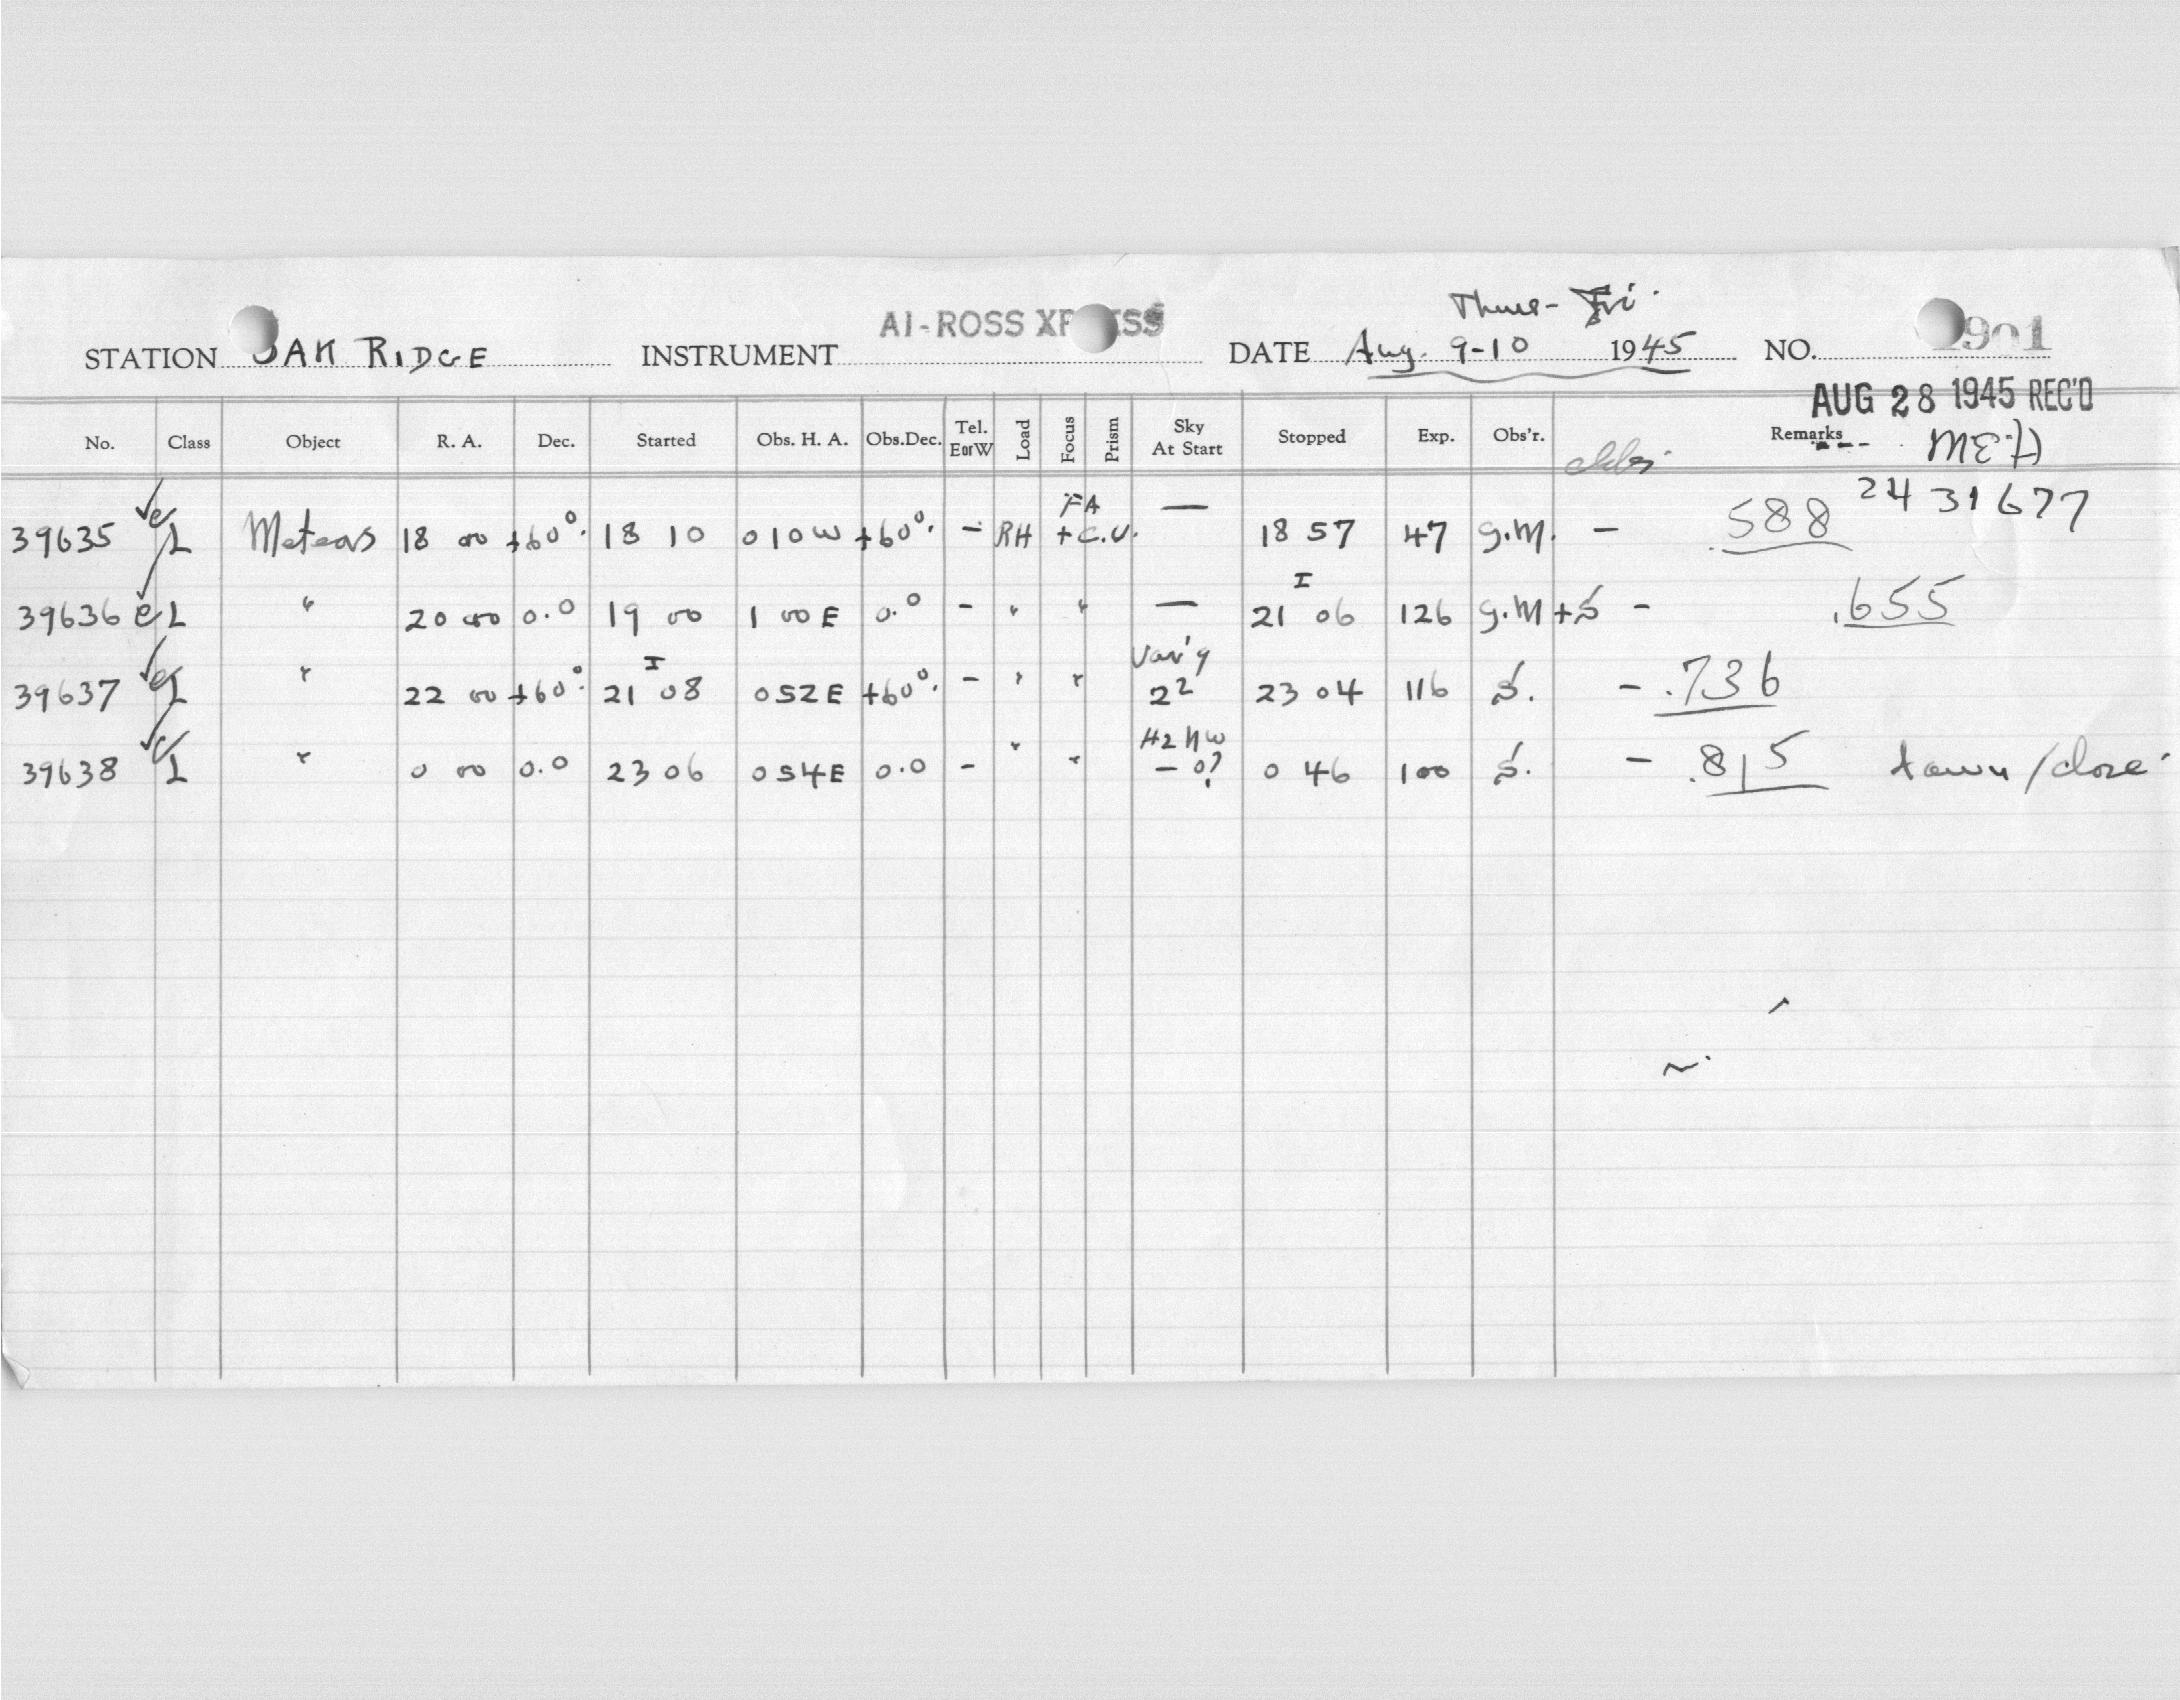 Thurs - Fri.
AI-ROSS XPRESS
STATION OAK RIDGE INSTRUMENT DATE Aug. 9-10 1945 NO. 901
AUG 28 1945 REC'D
No. Class Object R. A. Dec. Started Obs. H. A. Obs.Dec. Tel. EorW Load Focus Prism Sky At Start Stopped Exp. Obs'r. Remarks
MEH
2431677
39635 e L Meteors 18 00 +60°. 18 10 0 10 W +60°. - RH FA + C.U. — 18 57 47 G.M. - .588
39636 e L " 20 00 0.0 19 00 1 00 E 0.0 - " " — 21 I 06 126 G.M + S - .655
39637 e L " 22 00 +60°. 21 I 08 0 52 E +60°. - " " Var'y 22 23 04 116 S. - .736
39638 e L " 0 00 0.0 23 06 0 54 E 0.0 - " " Hz NW - 0? 0 46 100 S. - .815 dawn / close.